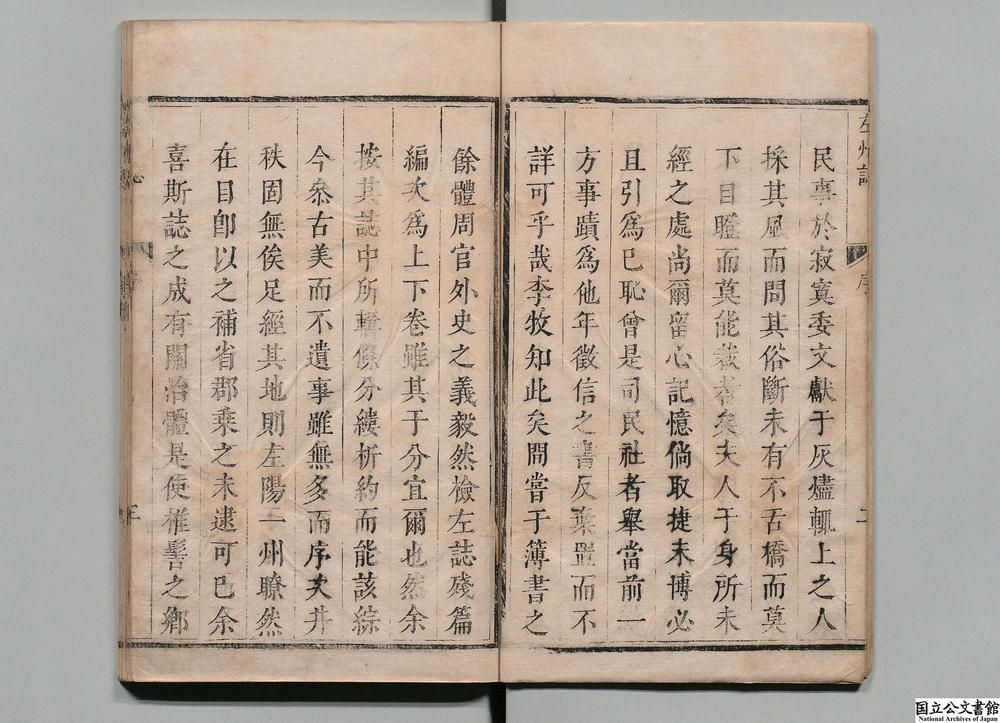 左州誌
序
二
民事於寂寞委文獻于灰燼輒上之人
採其風而問其俗斷未有不舌橋而莫
下目瞪而莫能裁者矣夫人于身所未
經之處尚爾留心記憶倘取捷未博必
且引爲已恥曾是司民社者舉當前一
方事蹟爲他年徵信之書反棄置而不
詳可乎哉李牧知此矣間嘗于簿書之
餘體周官外史之義毅然檢左誌殘篇
編次爲上下卷雖其于分宜爾也然余
按其誌中所輯條分縷析約而能該綜
今叅古美而不遺事雖無多而序次井
秩固無俟足經其地則左陽一州瞭然
在目卽以之補省郡乘之未逮可已余
喜斯誌之成有關治體是使椎髻之鄉
国立公文書館
National Archives of Japan